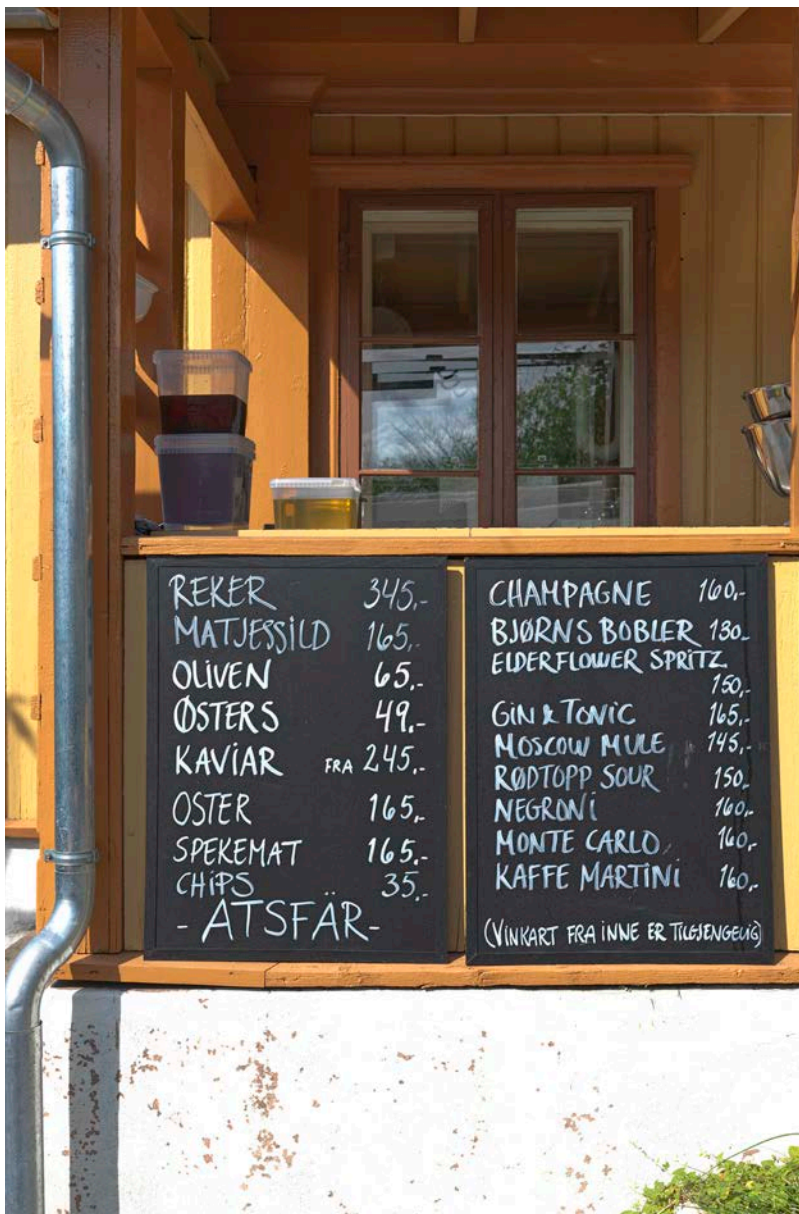 REKER 345,-
MATJESSILD 165,-
OLIVEN 65,-
ØSTERS 49,-
KAVIAR FRA 245,-
OSTER 165,-
SPEKEMAT 165,-
CHIPS 35,-
- ATSFÄR-
CHAMPAGNE 160,-
BJØRNS BOBLER 130,-
ELDERFLOWER SPRITZ
150,-
GIN & TONIC 165,-
MOSCOW MULE 145,-
RØDTOPP SOUR 150,-
NEGRONI 160,-
MONTE CARLO 160,-
KAFFE MARTINI 160,-
(VINKART FRA INNE ER TILGJENGELIG)